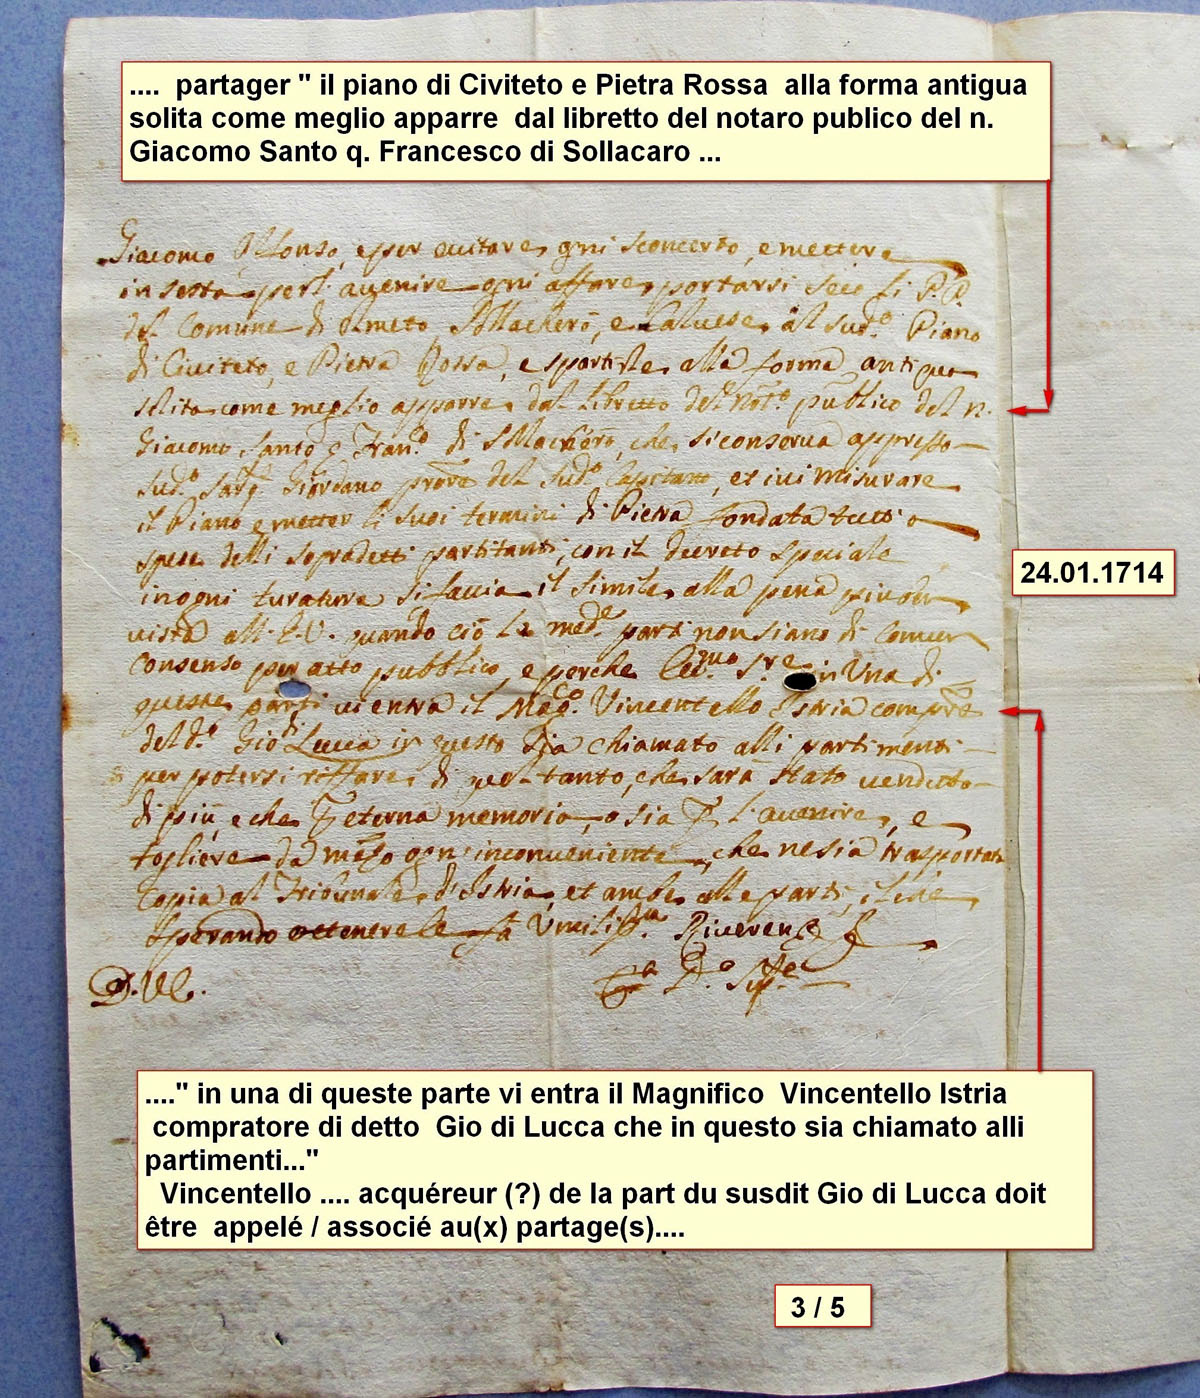 .... partager " il piano di Civiteto e Pietra Rossa alla forma antigua
solita come meglio apparre dal libretto del notaro publico del n.
Giacomo Santo q. Francesco di Sollacaro ...
Giacomo Alfonso, e per evitare ogni sconcerto, e mettere
in sesto per l'avenire ogni affare, portarsi li P.P.
del Comune di Olmeto Sollacherò, e Calvese, al sud.o Piano
di Civiteto, e Pietra Rossa, e spartirle alla forma antiqua
solita come meglio apparre dal libretto del not.o publico del n.
Giacomo Santo q Fran.o di Sollacarò, che si conserva appresso
sud.o Giordano del sud.o Capitano, et ivi misurare
il Piano e metter li suoi termini di Pietra fondata tutti a
spese delli sopradetti partitanti, con il decreto speciale
in ogni si faccia il simile alla pena
vista all. quando ciò le med.e parti non siano di comun
consenso per atto pubblico, e perche in una di
queste parti vi entra il Mag.co Vincentello Istria comp.re
del d.o Gio di Lucca in questo sia chiamato alli partimenti
per potersi riffare di per tanto, che sarà stato venduto
di più, e che eterna memoria, o sia l'avenire, e
togliere da mezo ogn'inconveniente, che ne sia trasportata
Copia al Tribunale d'Istria, et anche alle parti, il che
Sperando ottenere le fà Umiliss.ma Riverenza
24.01.1714
...." in una di queste parte vi entra il Magnifico Vincentello Istria
compratore di detto Gio di Lucca che in questo sia chiamato alli
partimenti..."
Vincentello .... acquéreur (?) de la part du susdit Gio di Lucca doit
être appelé / associé au(x) partage(s)....
3 / 5